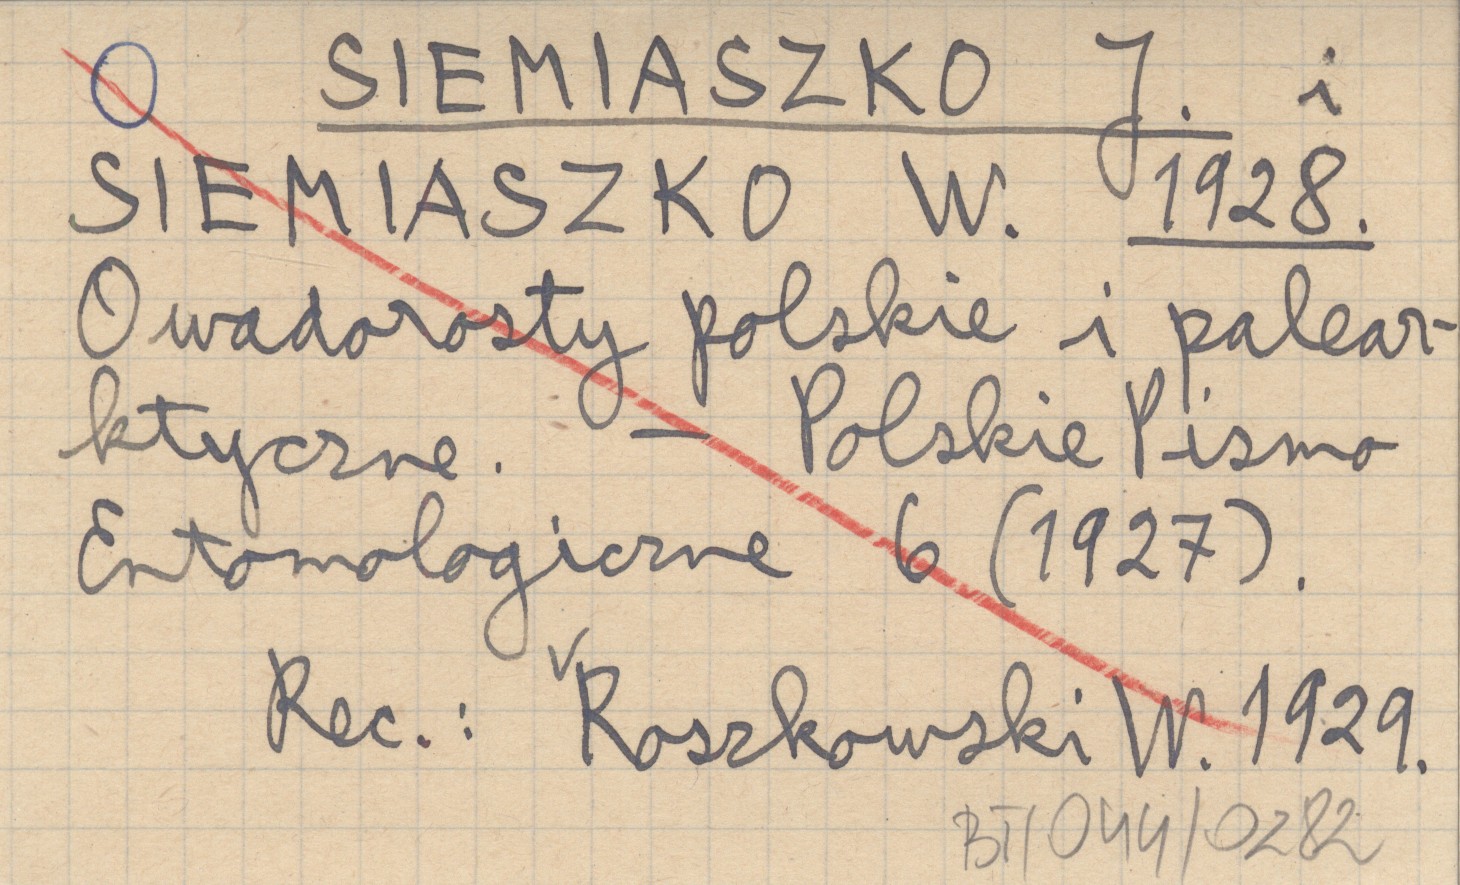 O SIEMIASZKO J. i
SIEMIASZKO W. 1928.
Owadorosty polskie i palear-
ktyczne. — Polskie Pismo
Entomologiczne 6 (1927).
Rec.: Roszkowski W. 1929.
BT/044/0282